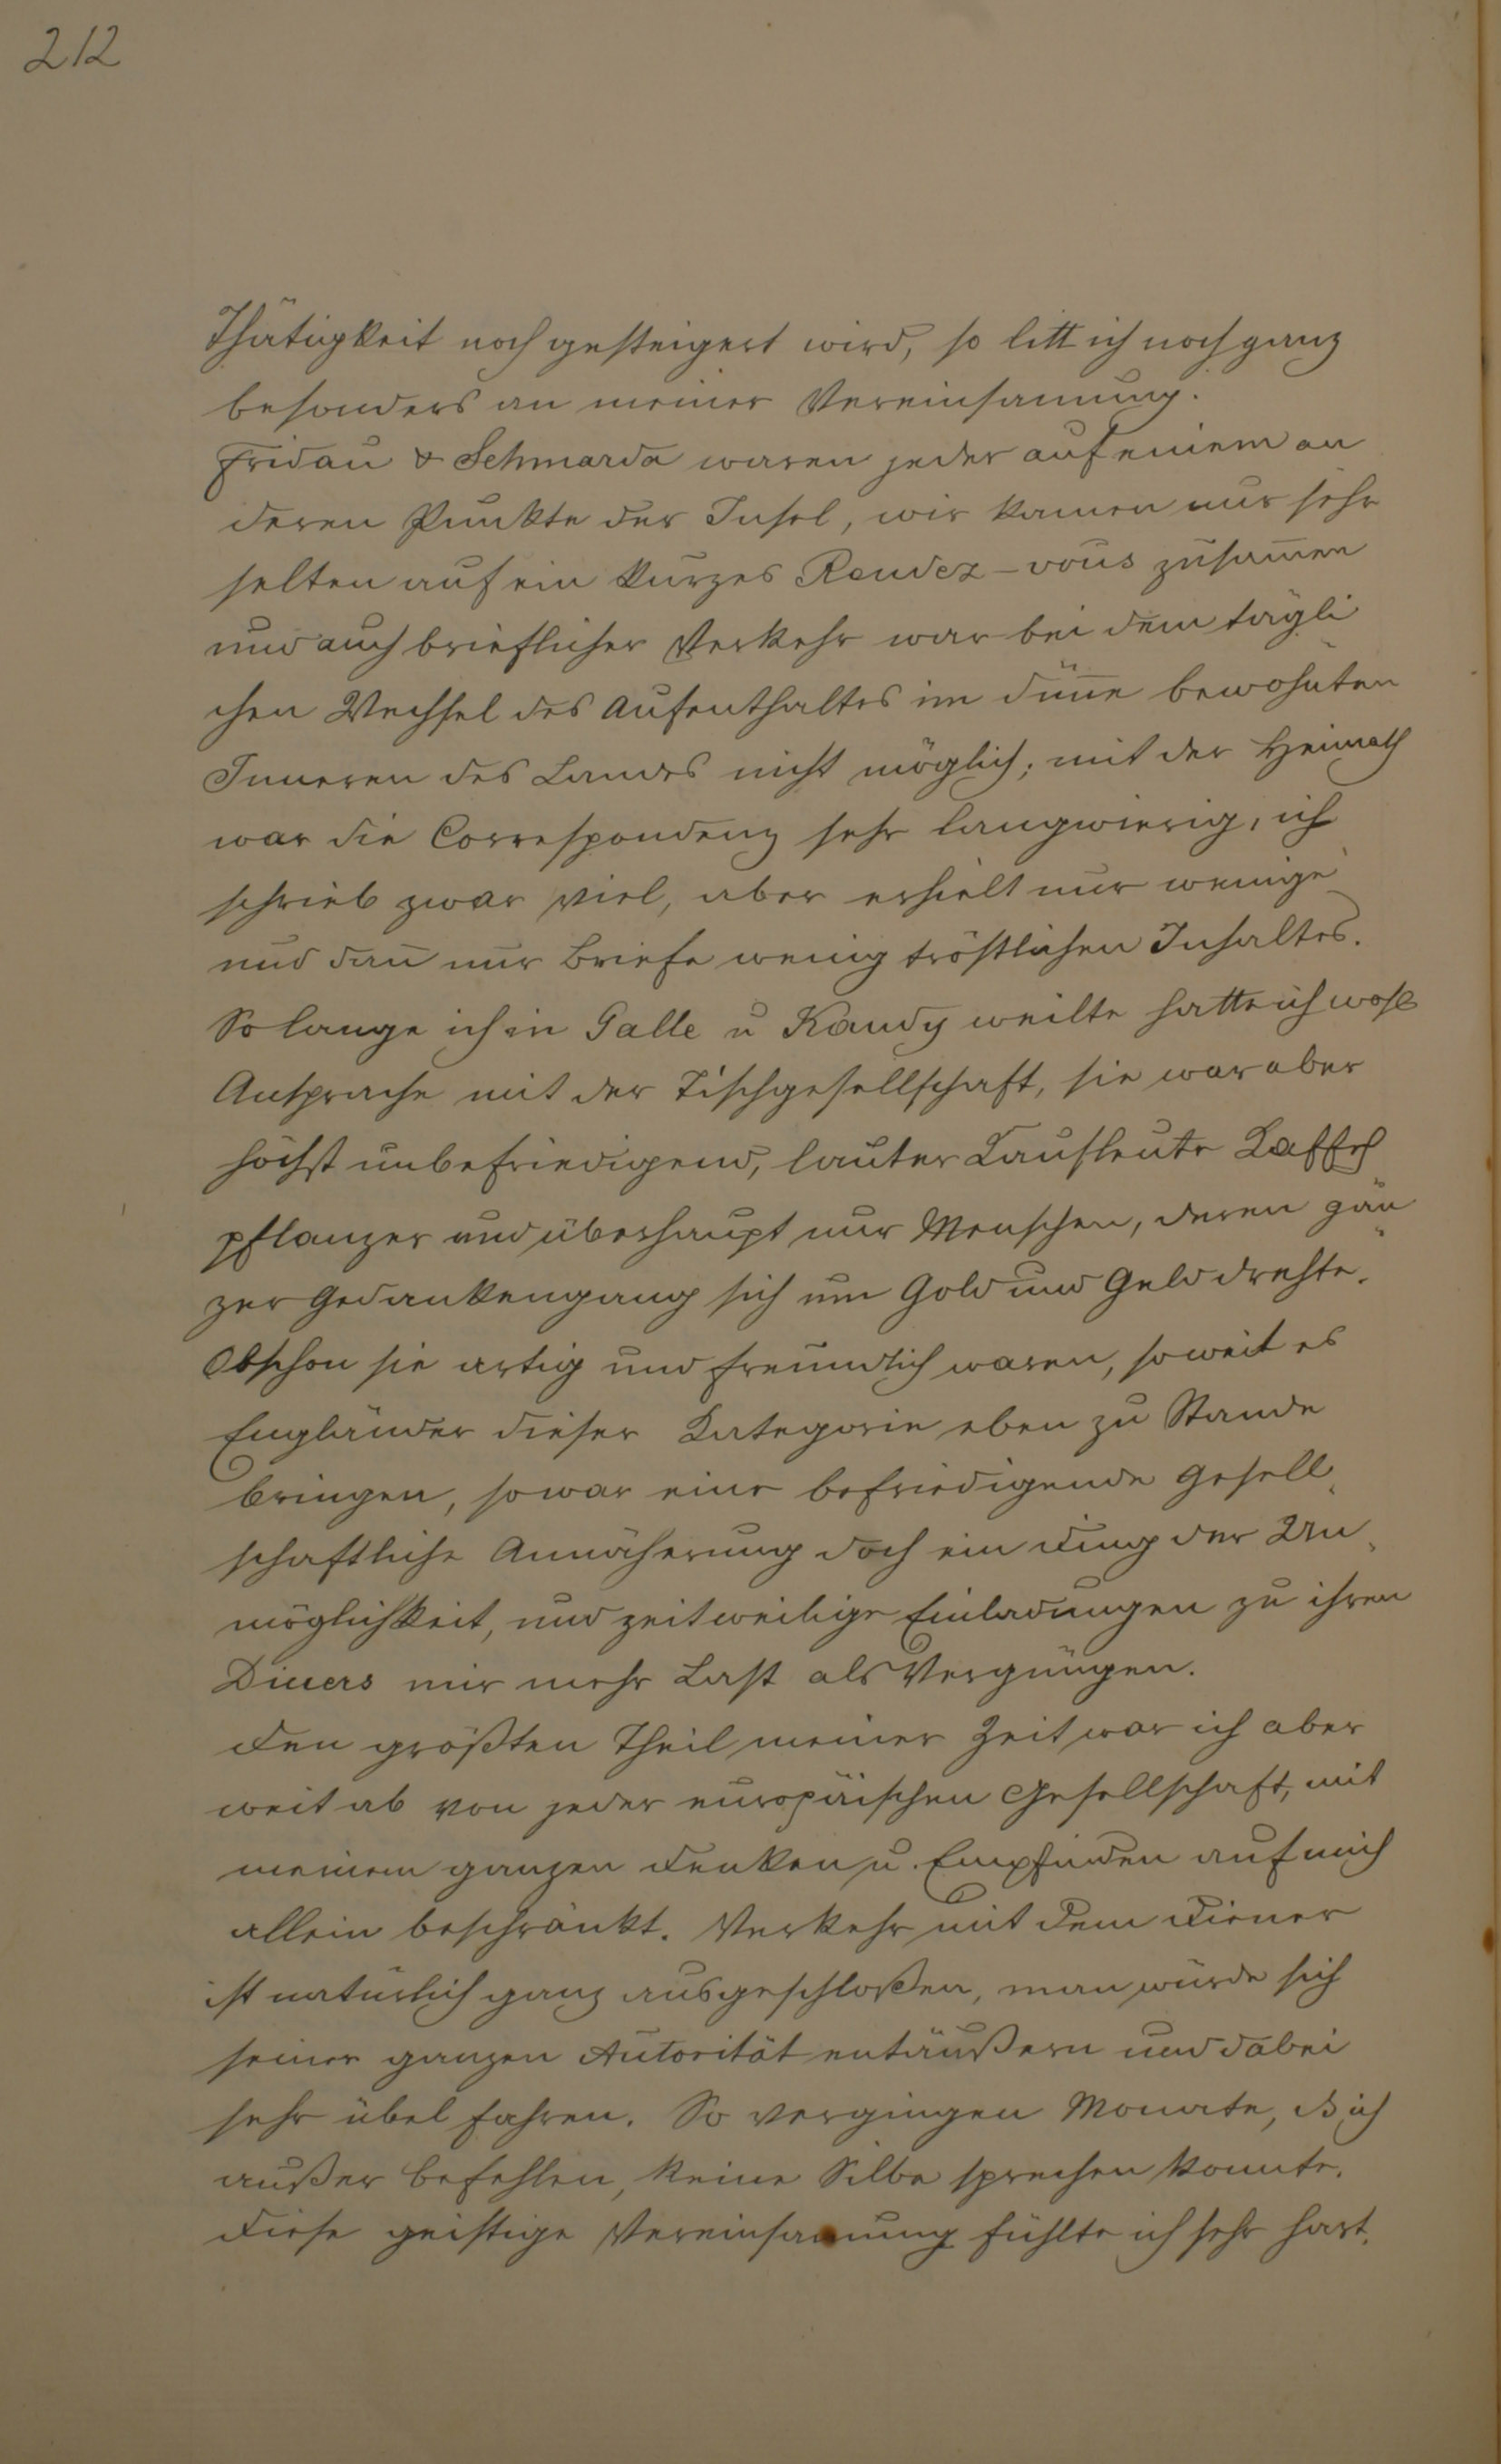 212
Thätigkeit noch gesteigert wird, so litt ich noch ganz
besonders an meiner Vereinsamung.
Fridau & Schmarda waren jeder auf einem an
deren Punkte der Insel, wir kamen nur sehr
selten auf ein kurzes Rendez-vous zusam̄en
und auch brieflicher Verkehr war bei dem tägli
chen Wechsel des Aufenthaltes im dün̄e bewohnten
Inneren des Landes nicht möglich; mit der Heimath
war die Correspondenz sehr langwierig, ich
schrieb zwar viel, aber erhielt nur wenige
und dan̄ nur Briefe wenig tröstlichen Inhaltes.
So lange ich in Galle u Kandy weilte hatte ich wohl
Ansprache mit der Tischgesellschaft, sie war aber
höchst unbefriedigend, lauter Kaufleute Kaffeh
pflanzer und überhaupt nur Menschen, deren gän
zer Gedankengang sich um Gold und Geld drehte.
Obschon sie artig und freundlich waren, soweit es
Engländer dieser Kategorie eben zu Stande
bringen, so war eine befriedigende gesell,
schaftliche Annäherung doch ein Ding der Un,
möglichkeit, und zeitweilige Einladungen zu ihren
Diners mir mehr Last als Vergnügen.
Den größten Theil meiner Zeit war ich aber
weit ab von jeder europäischen Gesellschaft, mit
meinem ganzen Denken u. Empfinden auf mich
allein beschränkt. Verkehr mit dem Diener
ist natürlich ganz ausgeschloßen, man würde sich
seiner ganzen Autorität entäußern und dabei
sehr übel fahren. So vergingen Monate, ich
außer Befehlen, keine Silbe sprechen konnte.
Diese geistige Vereinsamung fühlte ich sehr hart.